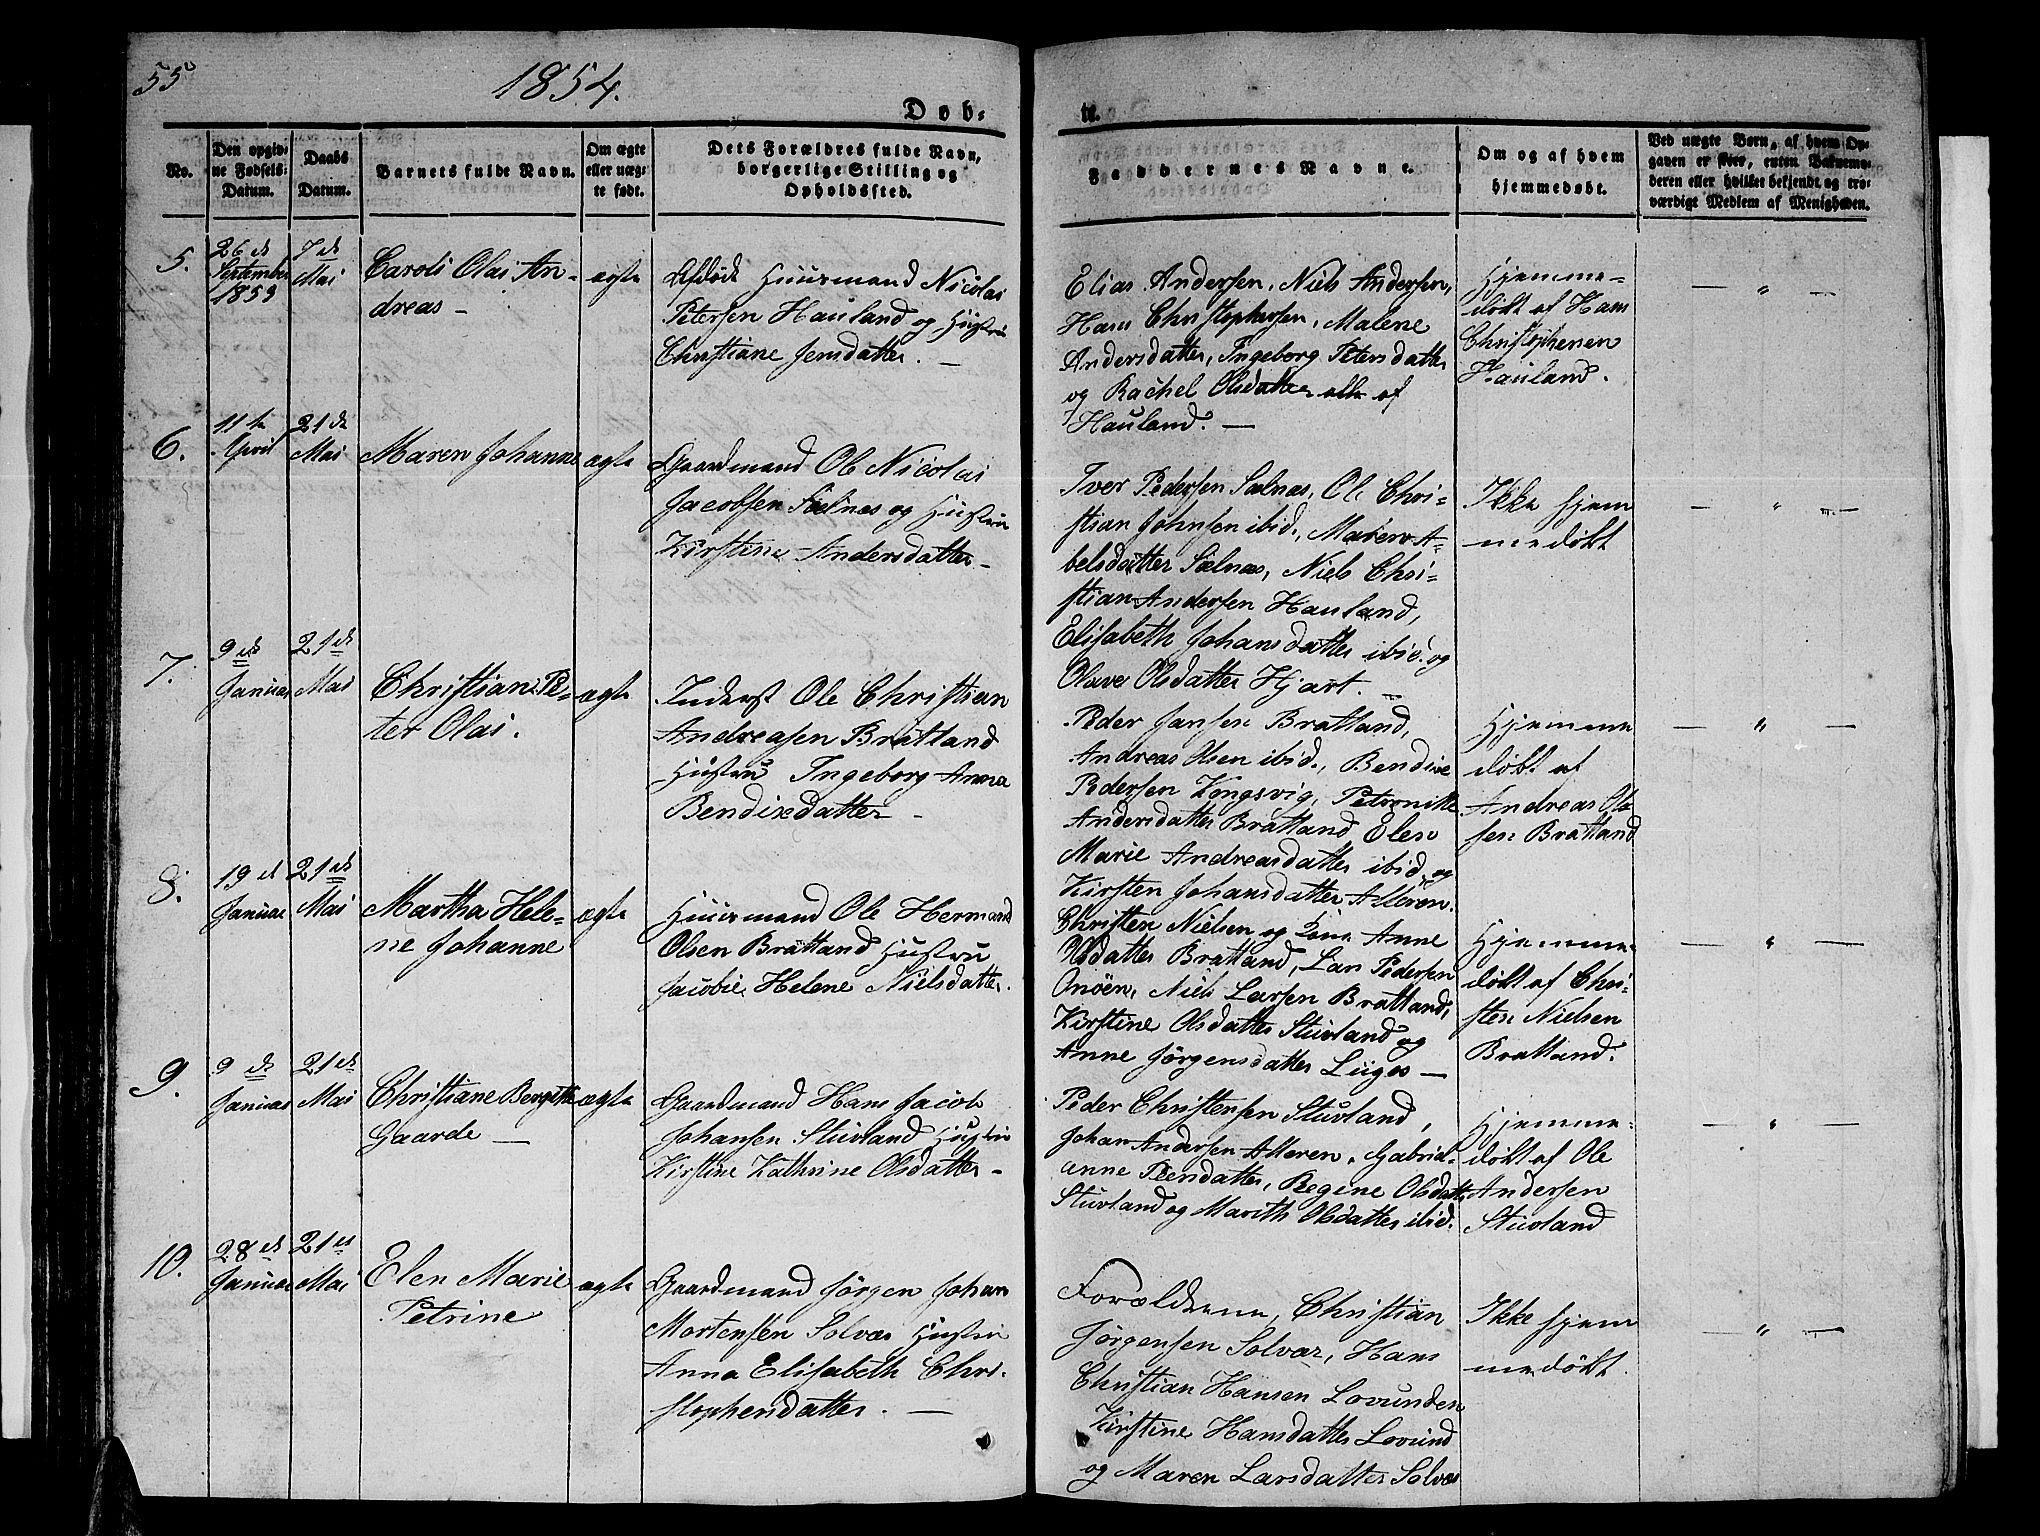 55
1854.
Døb-
te.
No.
Den opgiv-
ne Fødsels-
Datum.
Daabs
Datum.
Barnets fulde Navn.
Om ægte
eller uæg-
te født.
Dets Forældres fulde Navn,
borgerlige Stilling og
Opholdssted.
Faddernes Navne.
Om og af hvem
hjemmedøbt.
Ved uægte Børn, af hvem Op-
gaven er skeet, enten Bekvemo-
deren eller hvilket bekjendt og tro-
værdigt Medlem af Menigheden.
5.
26de
September
1853
7de
Mai
Caroli Olai An-
dreas -
ægte
Afdøde Huusmand Nicolai
Petersen Hauland og Hustru
Christiane Jensdatter. -
Elias Andersen, Niels Andersen,
Hans Christophersen, Malene
Andersdatter, Ingeborg Petersdatter
og Rachel Olsdatter alle af
Hauland. -
Hjemme-
døbt af Hans
Christophersen
Hauland.
- " -
6.
11te
April
21de
Mai
Maren Johanne
ægte
Gaardmand Ole Nicolai
Jacobsen Sælnæs og Hustru
Kirstine Andersdatter -
Iver Pedersen Sælnæs, Ole Chri-
stian Johnsen ibid., Maren A-
belsdatter Sælnæs, Niels Chri-
stian Andersen Hauland,
Elisabeth Johansdatter ibid. og
Olava Olsdatter Hjart. -
Ikke hjem
medøbt
- " -
7.
9de
Januar
21de
Mai
Christian Pe-
ter Olai.
ægte
Inderst Ole Christian
Andreasen Bratland
Hustru Ingeborg Anna
Bendixdatter -
Peder Jansen Bratland,
Andreas Olsen ibid., Bendix
Pedersen Kongsvig, Petronille
Andersdatter Bratland Elen
Marie Andreasdatter ibid. og
Kirsten Johansdatter Alteren.
Hjemme
døbt af
Andreas Ol-
sen Bratland
- " -
8.
19de
Januar
21de
Mai
Martha Hele-
ne Johanne
ægte
Huusmand Ole Hermand
Olsen Bratland Hustru
Jacobie Helene Nielsdatter.
Christen Nielsen og Kone Anne
Olsdatter Bratland, Lars Pedersen
Onøen, Niels Larsen Bratland,
Kirstine Olsdatter Stuvland og
Anne Jørgensdatter Luges -
Hjemme-
døbt af Chri-
sten Nielsen
Bratland.
- " -
9.
9de
Januar
21de
Mai
Christiane Bergitte
Gaarde -
ægte
Gaardmand Hans Jacob
Johansen Stuvland Hustru
Kirstine Kathrine Olsdatter -
Peder Christensen Stuvland,
Johan Andersen Alteren, Gabriel-
anne Peersdatter, Regine Olsdatter
Stuvland og Marith Olsdatter ibid.
Hjemme-
døbt af Ole
Andersen
Stuvland
- " -
10.
28de
Januar
21de
Mai
Elen Marie
Petrine
ægte
Gaardmand Jørgen Johan
Mortensen Solvær Hustru
Anna Elisabeth Chri-
stophersdatter. -
Forældrene, Christian
Jørgensen Solvær, Hans
Christian Hansen Lovunden
Kirstine Hansdatter Lovund
og Maren Larsdatter Solvær
Ikke hjem
medøbt.
- " -